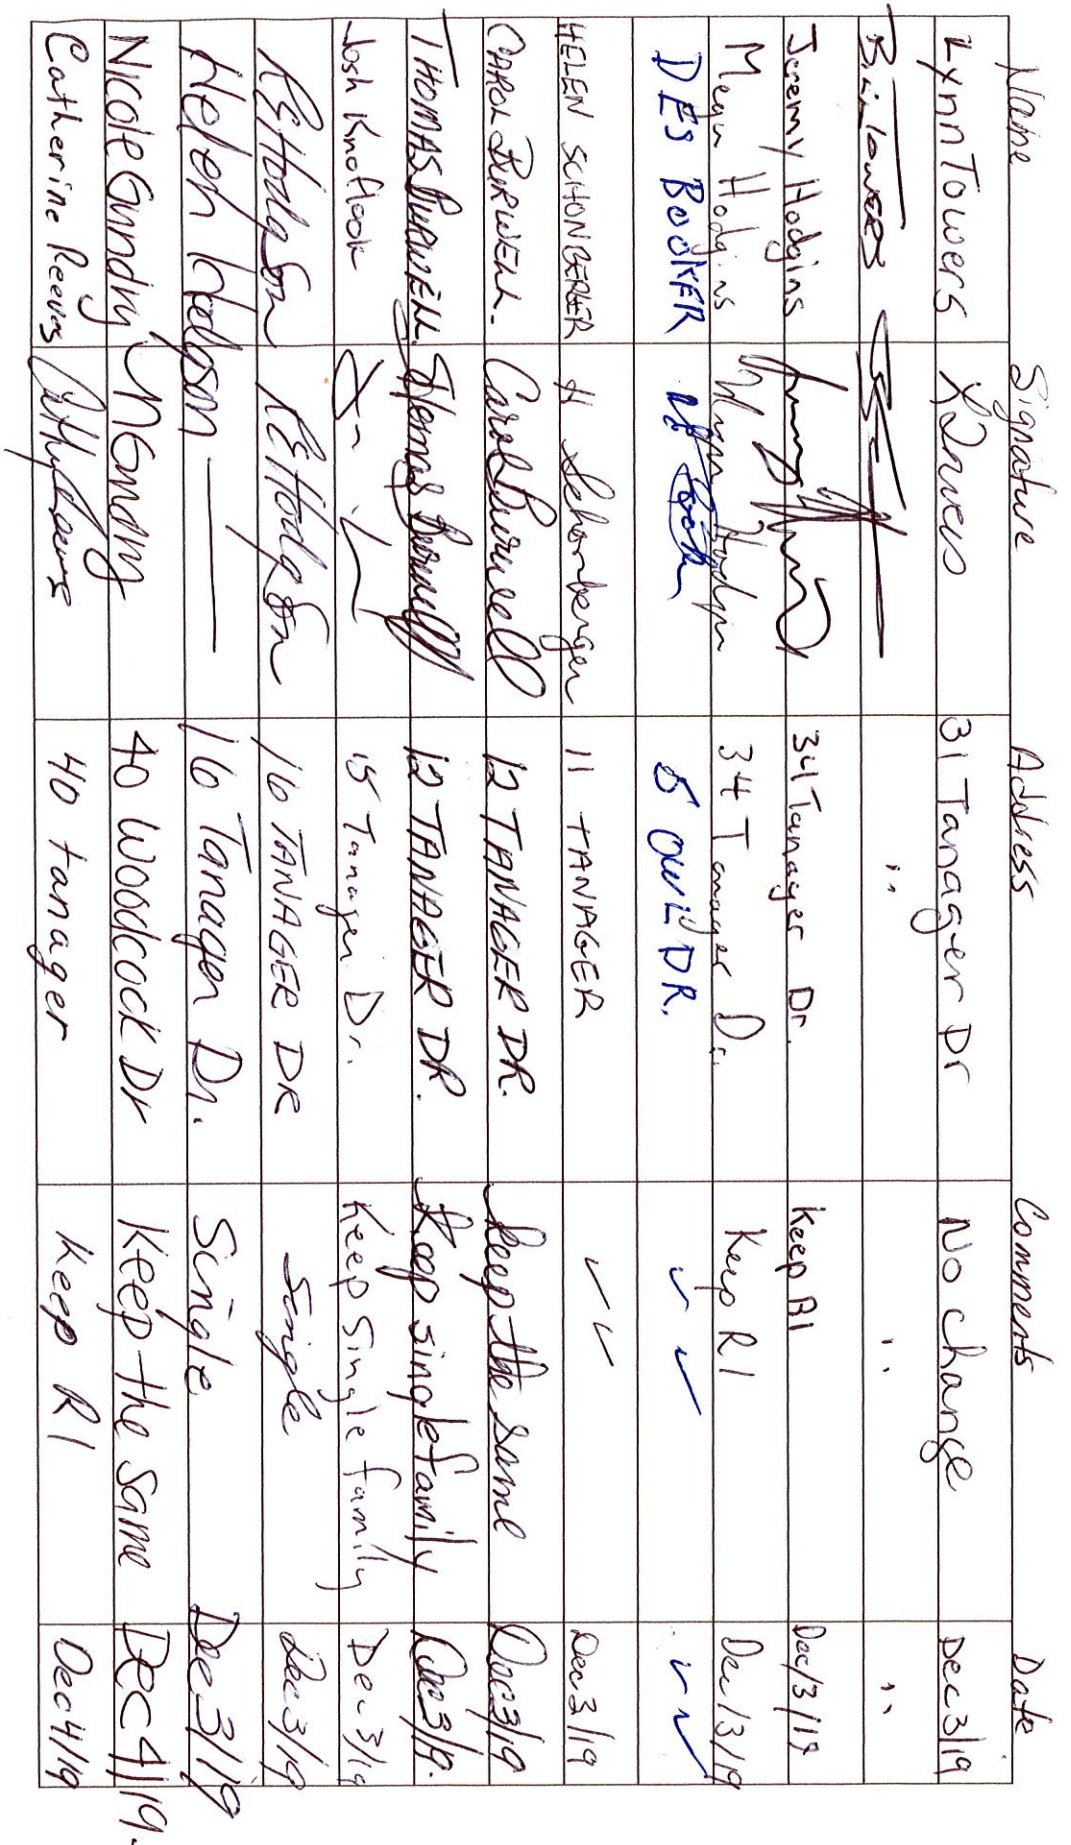 Name Signature Address Comments Date
Lynn Towers 31 Tanager Dr No change Dec 3/19
Towers " " "
Jeremy Hodgins 34 Tanager Dr. Keep R1 Dec/3/19
Megan Hodgins 34 Tanager Dr. Keep R1 Dec/3/19
DES BOOKER 5 OWL DR. ✓ ✓ ✓ ✓
HELEN SCHONBERGER H Schonberger 11 TANAGER ✓ ✓ Dec 3/19
CAROL BURWELL. Carol Burwell 12 TANAGER DR. Keep the same Dec 3/19
THOMAS BURWELL. Thomas Burwell 12 TANAGER DR. Keep single family Dec 3/19.
Josh Knoflook 15 Tanager Dr. Keep Single family Dec 3/19
RSHodgson RSHodgson 16 TANAGER DR Single Dec 3/19
Helen Hodgson — 16 Tanager Dr. Single Dec 3/19
Nicole Gundry N Gundry 40 Woodcock Dr Keep the Same Dec 4/19.
Catherine Reeves 40 tanager Keep R1 Dec 4/19